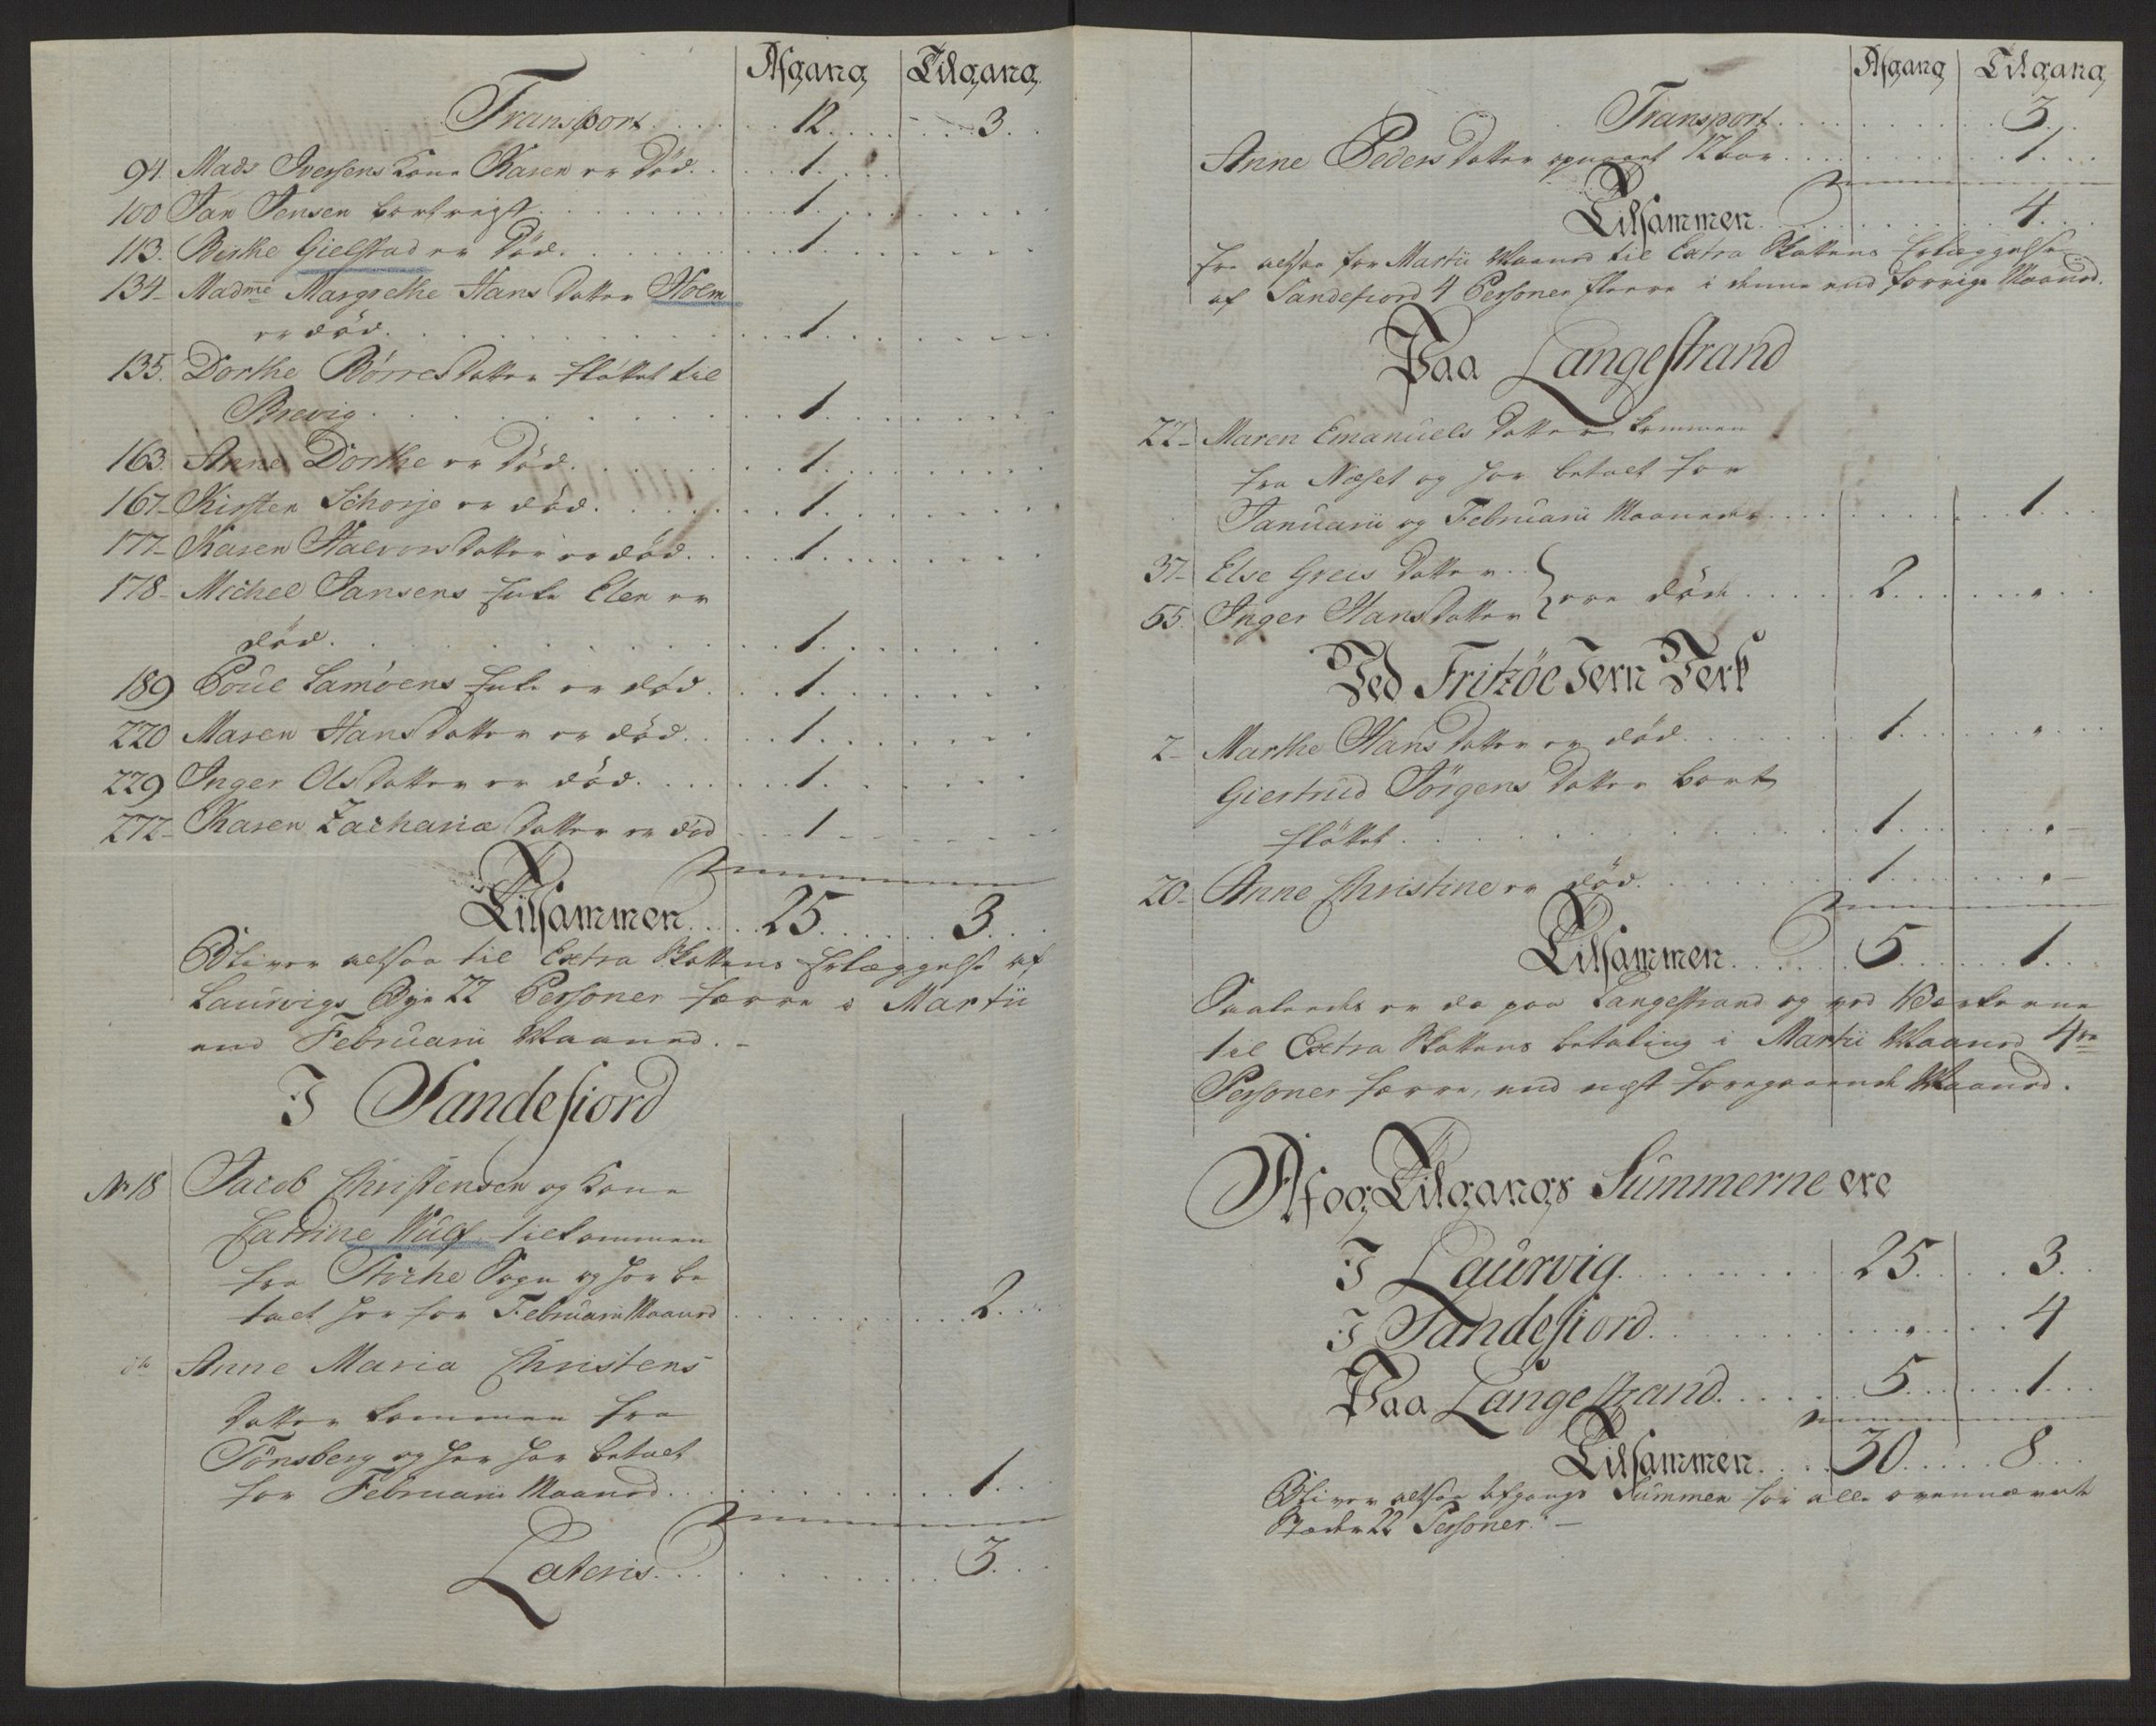 Afgang Tilgang
Transport 12 3
94. Mads Iversens Kone Karen er Död 1
100 Jan Jensen bortreist 1
113. Birthe Gielstad er Död 1
134 Madme Margrethe Hans Datter Holm
er död 1
135. Dorthe Börres Datter flöttet til
Brevig 1
163. Anne Dorthe er Död 1
167 Kirsten Schorje er död 1
177 Karen Halvors Datter er död 1
178 Michel Jansens Enke Elen er
död 1
189 Poul Lamöens Enke er död 1
220 Maren Hans Datter er död 1
229 Inger Ols Datter er död 1
272 Karen Zacharia Datter er död 1
Tilsammen 25 3
Bliver altsaa til Extra Skattens Erlæggelse af
Laurvigs Bye 22 Personer færre i Martii
end Februarii Maaned.
I Sandefiord
No 18 Jacob Christensen og Kone
Cathrine Wulf tilkommen
fra Stocke Sogn og har be
talt her for Februarii Maaned 2
do Anne Maria Christens
Datter kommen fra
Tönsberg og her har betalt
for Februarii Maaned 1
Lateris 3
Afgang Tilgang
Transport 3
Anne Peders Datter opnaaet 12 Aar 1
Tilsammen 4
Er altsaa for Martii Maaned til Extra Skattens Erlæggelse
af Sandefiord 4 Personer fleere i denne end forrige Maaned.
Paa Langestrand
22 Maren Emanuels Datter kommen
fra Næset og har betalt for
Januarii og Februarii Maaneder 1
37 Else Greis Datter
55. Inger Hans Datter } ere döde 2
Ved Fritzöe Jern Verk
2 Marthe Hans Datter er död 1
Giertrud Jörgens Datter bort
flöttet 1
20 Anne Christine er död 1
Tilsammen 5 1
Saaledes er da paa Langestrand og ved Værkerne
til Extra Skattens betaling i Martii Maaned 4re
Personer færre, end næst foregaaende Maaned.
Af og Tilgangs Summerne ere
I Laurvig 25 3
I Sandefiord 4
Paa Langestrand 5 1
Tilsammen 30 8
Bliver altsaa Afgangs Summen for alle ovennævnte
Stæder 22 Personer.